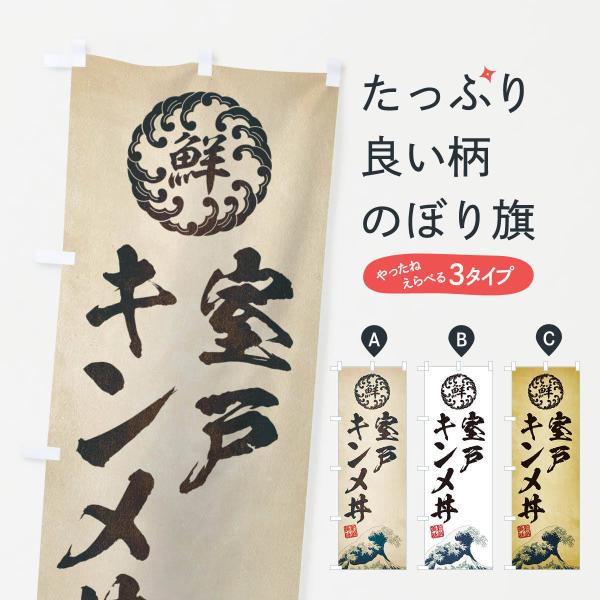 鮮
室戸
キンメ丼
たっぷり
良い柄
のぼり旗
やったね
えらべる
3タイプ
A
B
C
鮮
室戸
キンメ丼
鮮
室戸
キンメ丼
鮮
室戸
キンメ丼